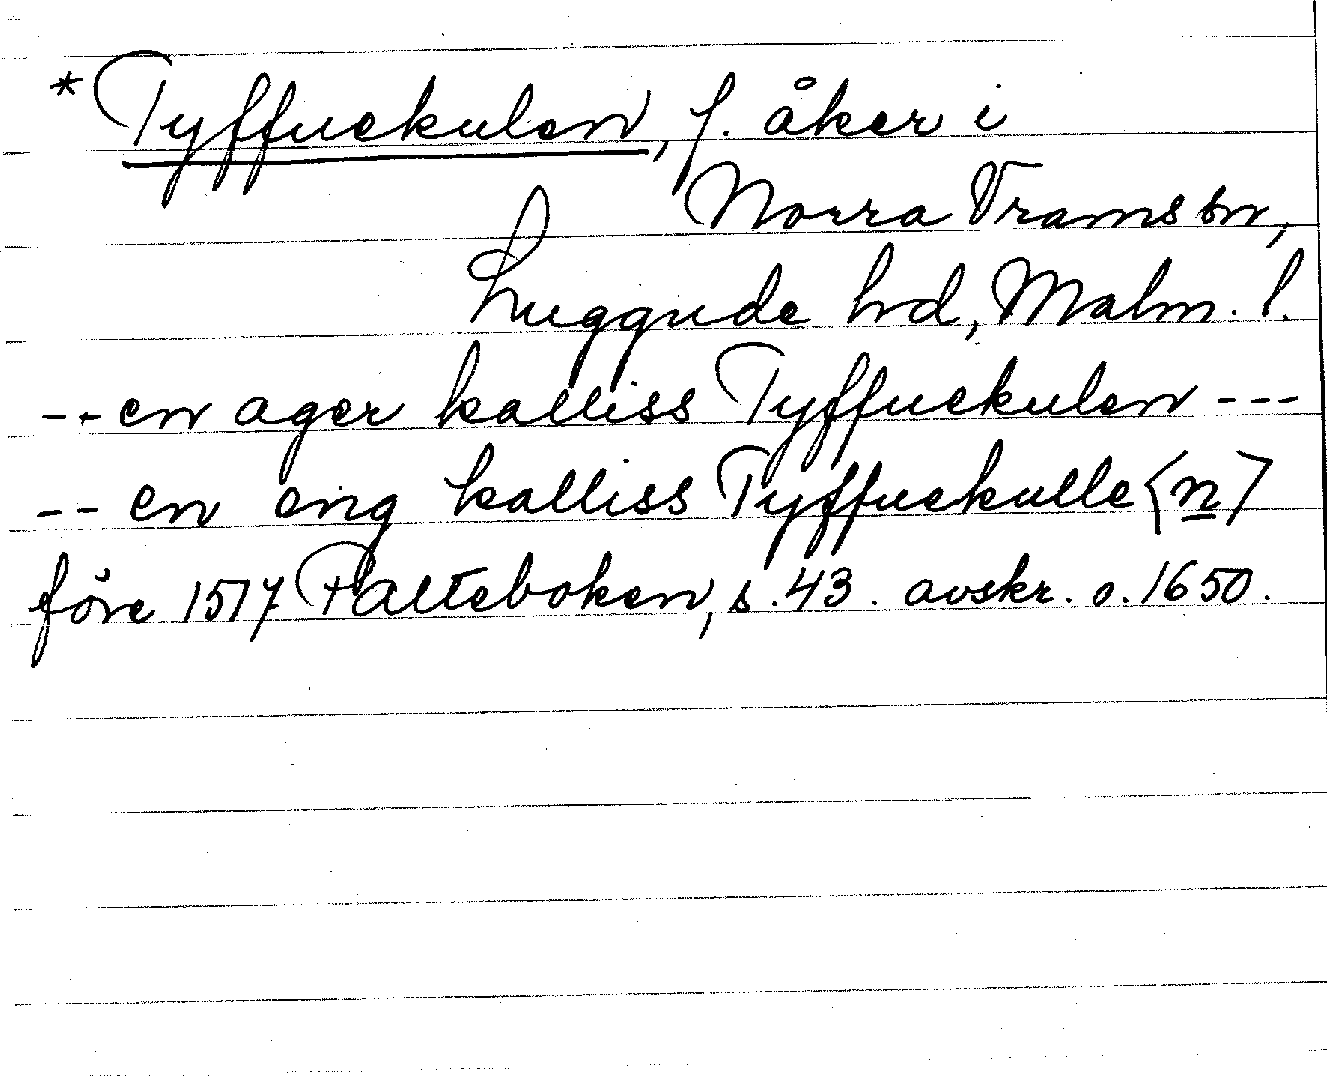 *Tyffuekulen, f. åker i
Norra Vrams sn,
Luggude hd, Malm. l.
--en ager kalliss Tyffuekulen ---
-- en eng kalliss Tyffuekulle<n>
före 1517 Palteboken, s. 43. avskr. o. 1650.